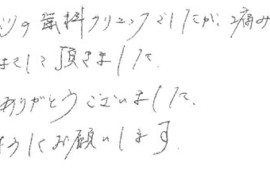 の歯科クリニックでしたが、痛み
まして頂きました。
ありがとうございました。
ようにお願いします